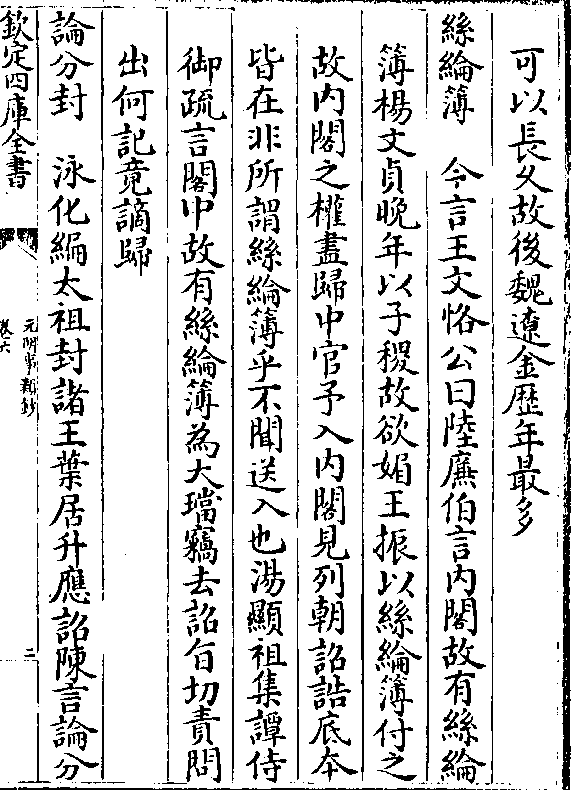 可以長久故後魏遼金歷年最多
絲綸簿　今言王文恪公曰陸廉伯言内閣故有絲綸
簿楊文貞晩年以子稷故欲媚王振以絲綸簿付之
故内閣之權盡歸中官予入内閣見列朝詔誥底本
皆在非所謂絲綸簿乎不聞送入也湯顯祖集譚侍
御疏言閣中故有絲綸簿為大璫竊去詔旨切責問
出何記竟謫歸
論分封　泳化編太祖封諸王葉居升應詔陳言論分
欽定四庫全書
元明事類鈔
卷六
三